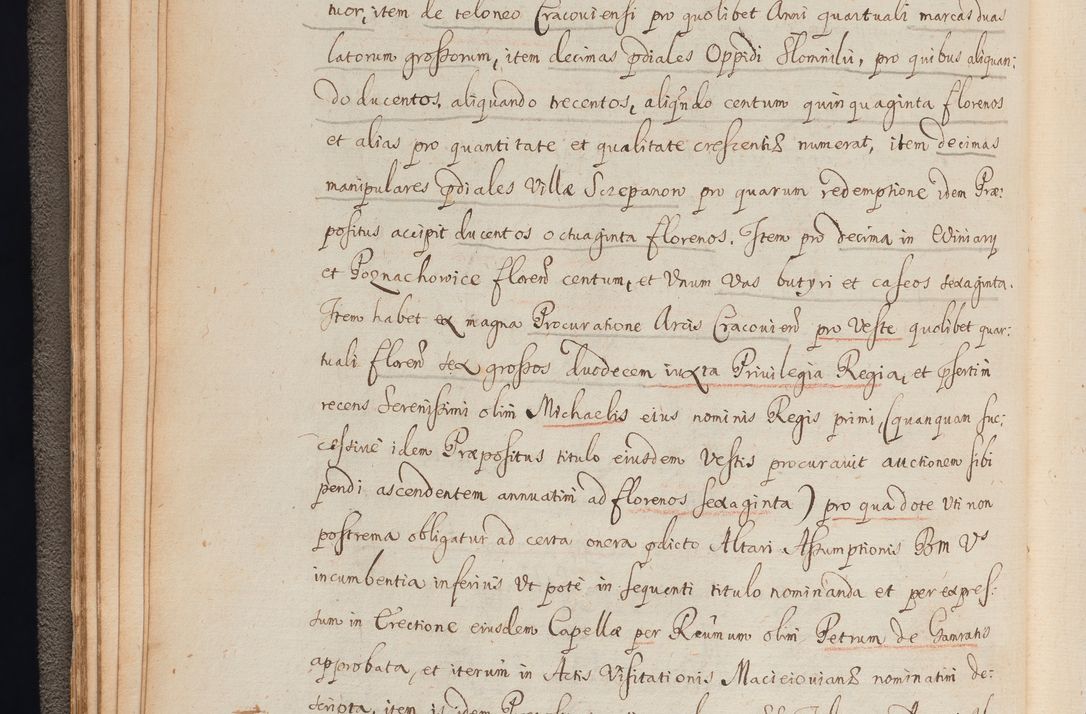 tuor, item de teloneo Cracouiensi pro quolibet Anni quartuali marcas duas
latorum grossorum, item decimas p̃diales Oppidi Slomniki, pro quibus aliquan:
do ducentos, aliquando trecentos, aliq̃ndo centum quinquaginta florenos
et alias pro quantitate et qualitate creszentiæ numerat, item decimas
manipulares p̃diales Villæ Sczepanow pro quarum redemptione idem Præ:
positus accipit ducentos octuaginta florenos. Item pro decima in Winiary
et Poznachowice floren̄ centum, et Unum Vas butyri et caseos sexaginta.
Item habet ex magna Procuratione Arcis Cracouien̄ pro Veste quolibet quar:
tuali floren̄ sex grossos duodecem iuxta Privilegia Regia, et p̃sertim
recens Serenissimi olim Michaelis eius nominis Regis primi, (quanquam suc:
cessive idem Præpositus titulo eiusdem Vestis procurauit auctionem sibi
pendi ascendentem annuatim ad florenos sexaginta) pro qua dote Uti non
postrema obligatur ad certa onera p̃dicto Altari Assumptionis Bm Vs
incumbentia inferius Ut potè in sequenti titulo nominanda et per expres:
sum in Erectione eiusdem Capellæ per Reūmum olim Petrum de Gamratis
approbata, et iterum in Actis Visitationis Macieiowianæ nominatim de:
scripta, item is idem